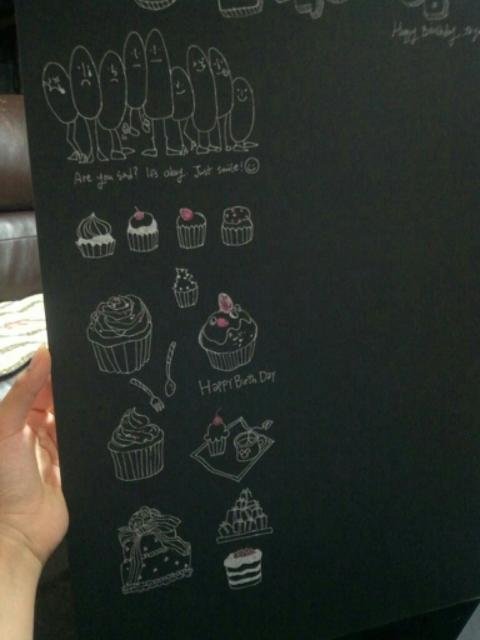 Happy Birthday..
Are you sad? It's okay. Just smile!
Happy Birth Day